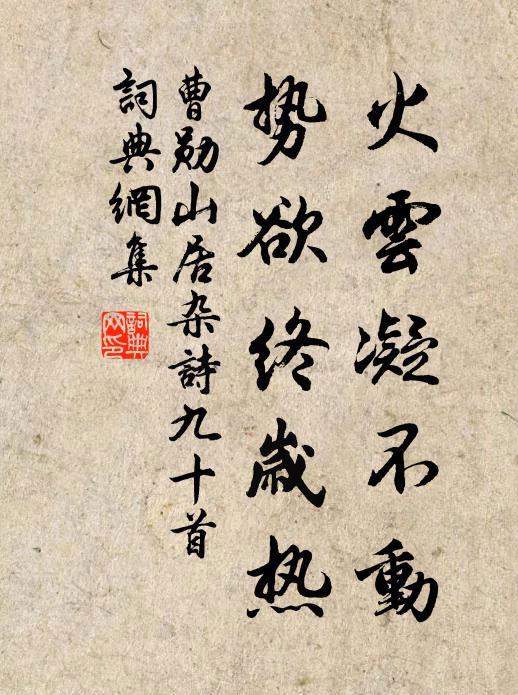 火雲凝不動
势欲终歲热
曹勋山居杂詩九十首
詞典網集
詞典网印